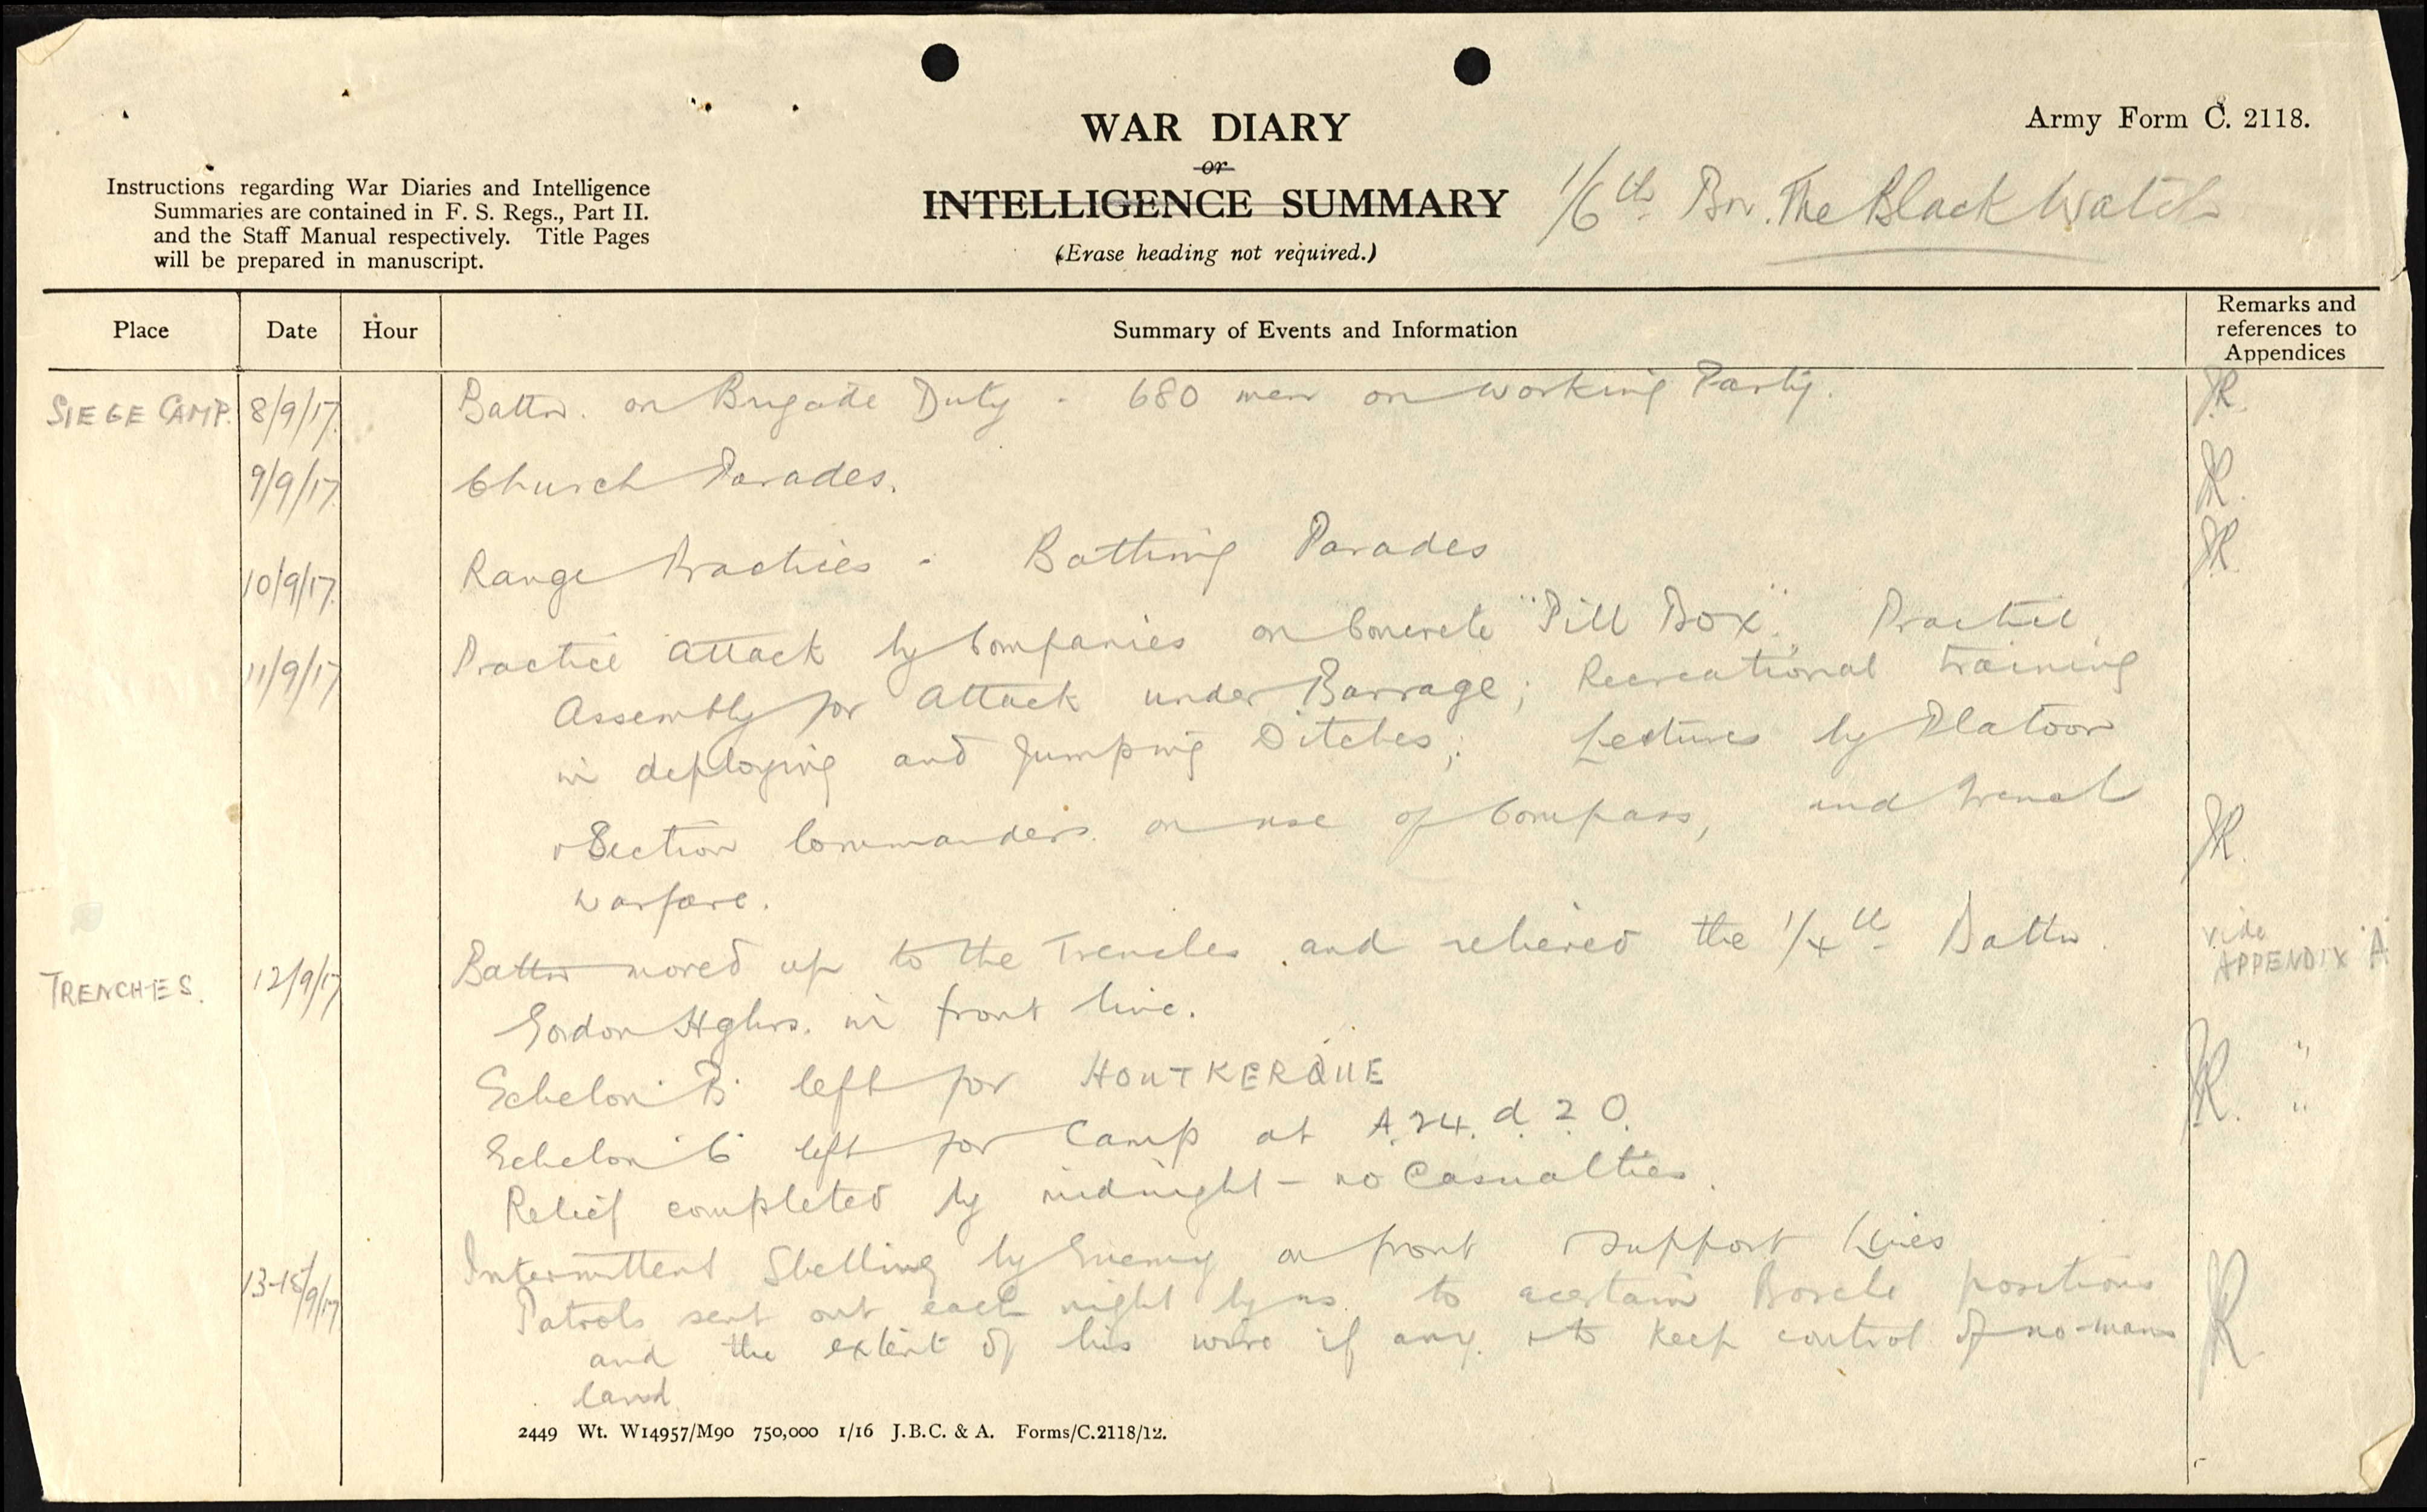 Army Form C. 2118.
WAR DIARY
or
INTELLIGENCE SUMMARY
(Erase heading not required.)
1/6th Bn. The Black Watch
Instructions regarding War Diaries and Intelligence
Summaries are contained in F. S. Regs., Part II.
and the Staff Manual respectively. Title Pages
will be prepared in manuscript.
Place Date Hour Summary of Events and Information Remarks and references to Appendices
SIEGE CAMP. 8/9/17. Battn. on Brigade Duty - 680 men on working Party. JR.
9/9/17. Church Parades. JR.
10/9/17. Range Practices - Bathing Parades JR.
11/9/17 Practice attack by Companies on Concrete "Pill Box". Practice
Assembly for attack under Barrage; Recreational training
in deploying and Jumping Ditches; Lectures by Platoon
& Section Commanders on use of Compass, and trench JR.
warfare.
TRENCHES. 12/9/17 Battn moved up to the Trenches and relieved the 1/4th Battn. vide APPENDIX 'A'
Gordon Hghrs. in front line.
Echelon 'B' left for HOUTKERQUE JR. "
Echelon 'C' left for Camp at A.24.d.2.0. "
Relief completed by midnight - no Casualties.
13-15/9/17 Intermittent Shelling by Enemy on front & support Lines
Patrols sent out each night by us to acertain Bosche positions
and the extent of his wire if any & to keep control of no-mans JR.
land.
2449 Wt. W14957/M90 750,000 1/16 J.B.C. & A. Forms/C.2118/12.